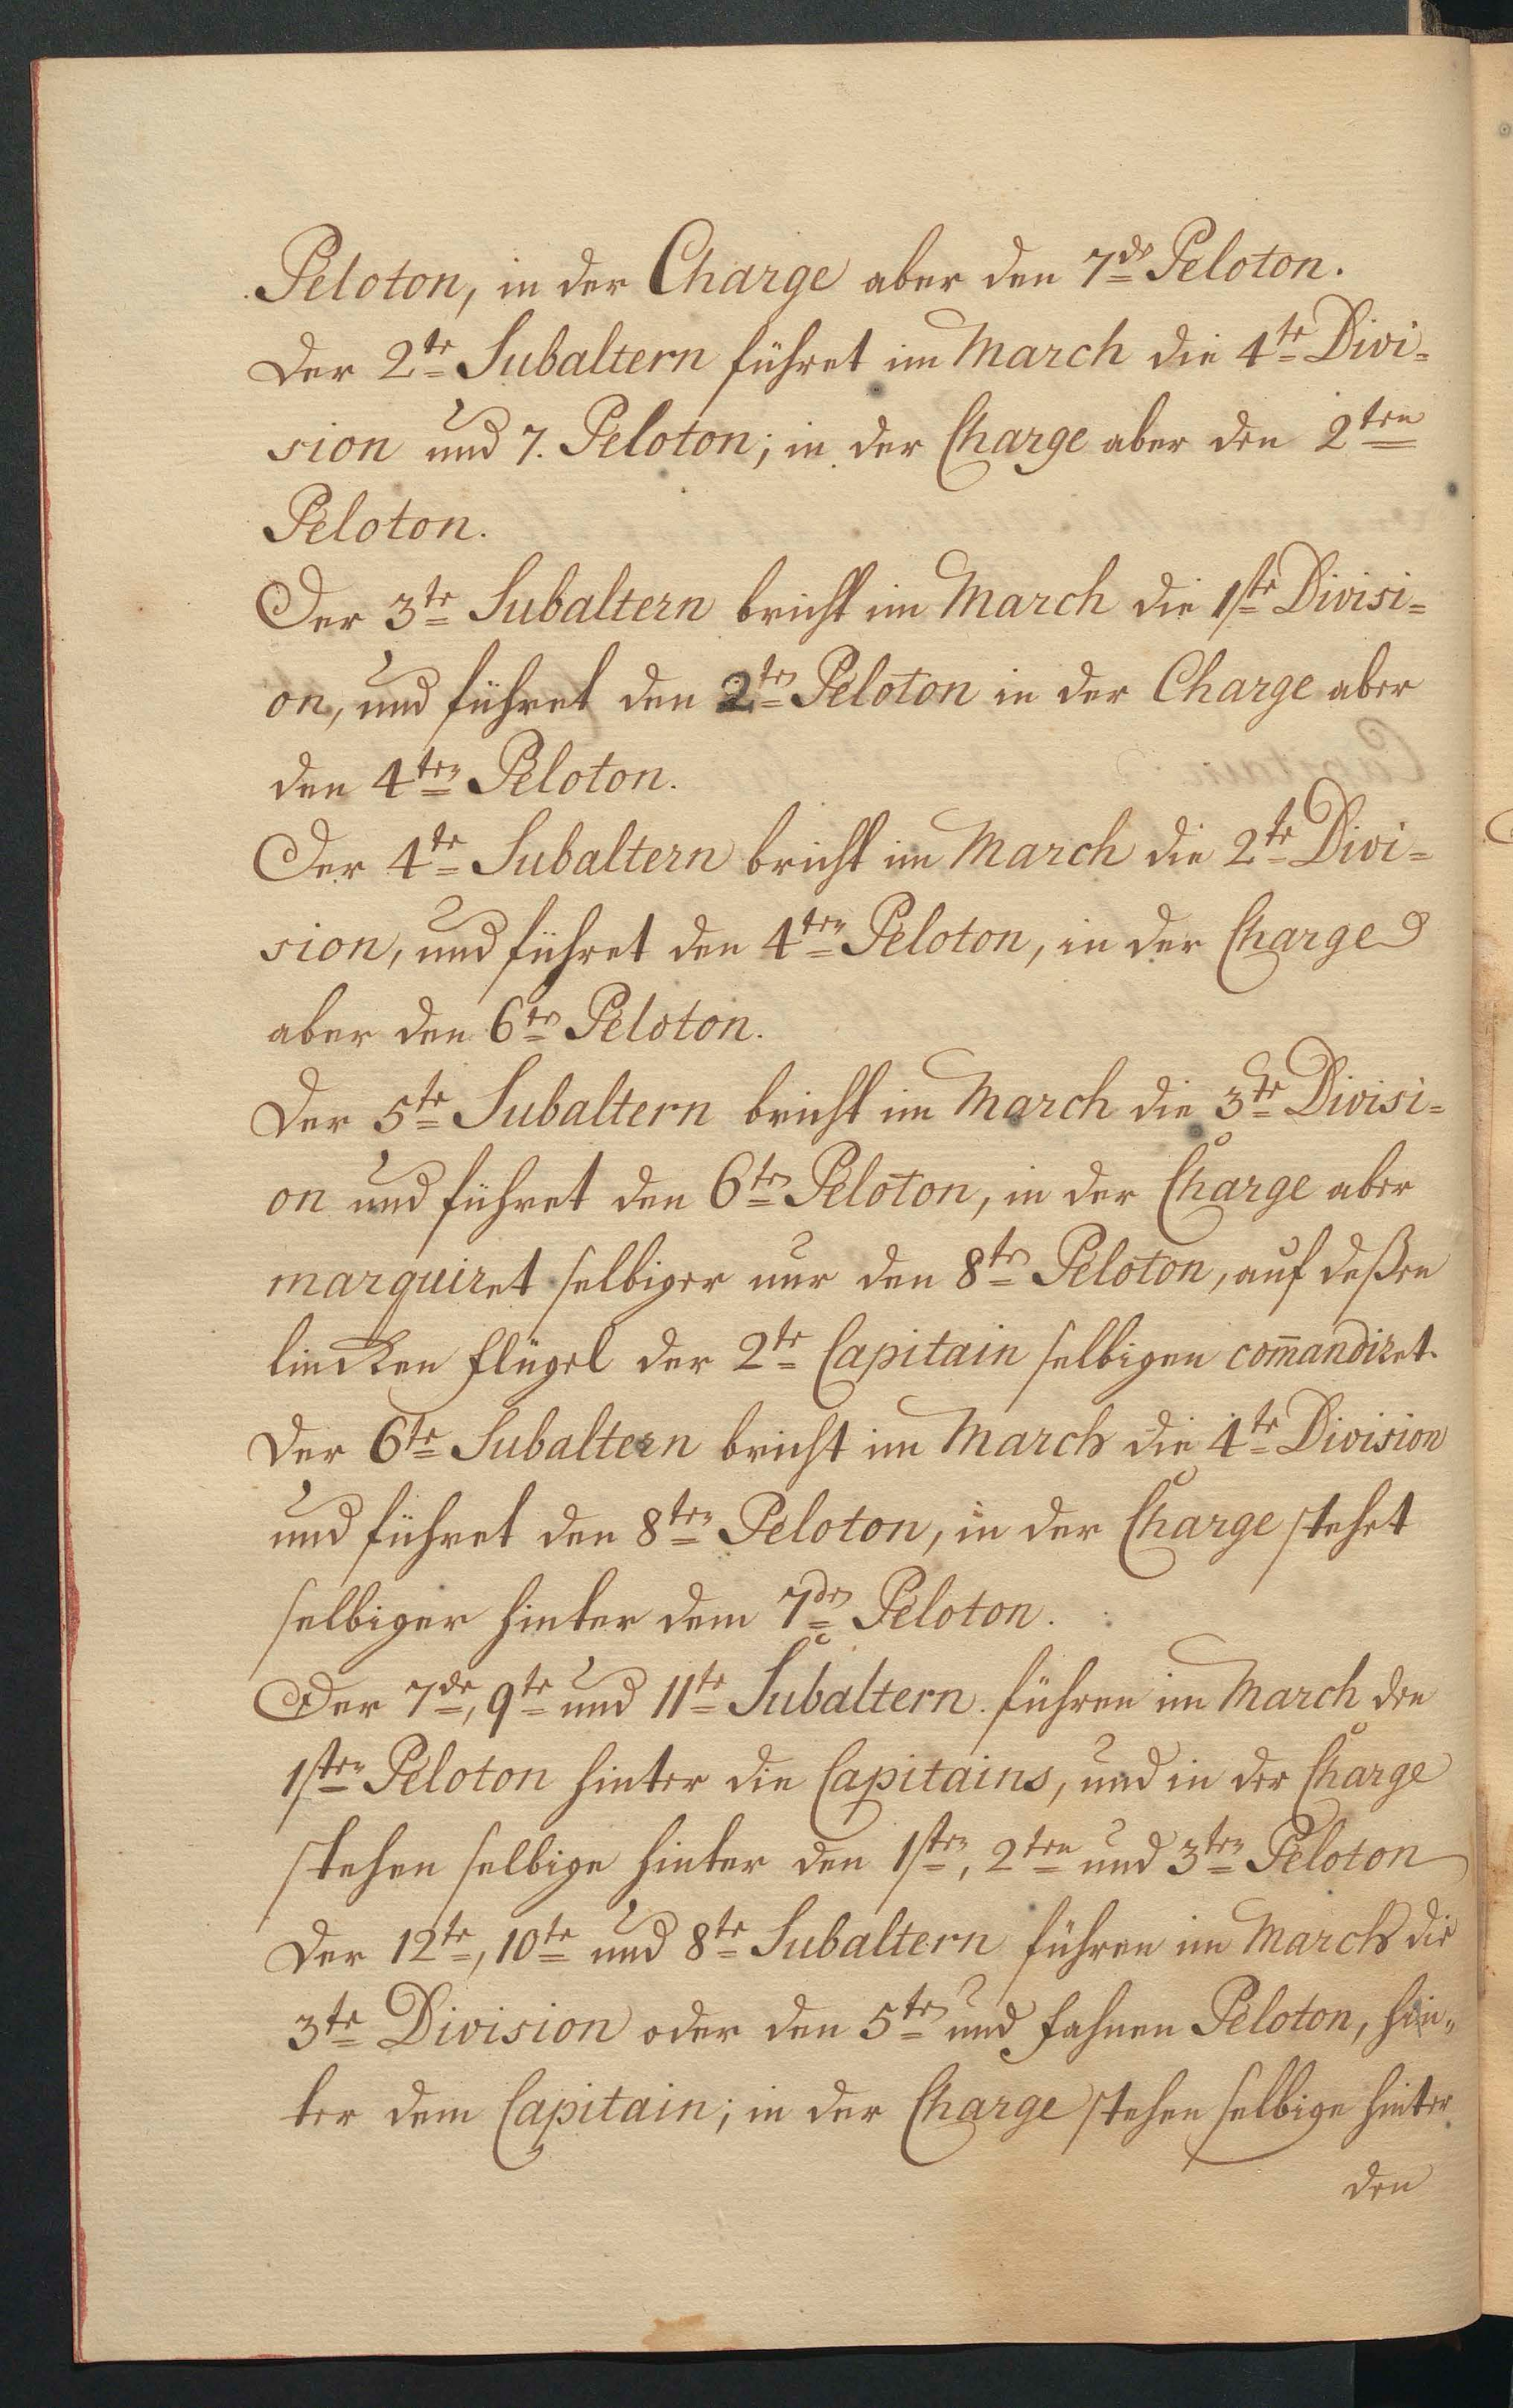 Peloton, in der Charge aber den 7den Peloton.
Der 2te Subaltern führet im March die 4te Divi=
sion und 7. Peloton; in der Charge aber den 2ten
Peloton.
Der 3te Subaltern bricht im March die 1ste Divisi=
on, und führet den 2ten Peloton in der Charge aber
den 4ten Peloton.
Der 4te Subaltern bricht im March die 2te Divi=
sion, und führet den 4ten Peloton, in der Charge
aber den 6ten Peloton.
Der 5te Subaltern bricht im March die 3te Divisi=
on und führet den 6ten Peloton, in der Charge aber
marquiret selbiger nur den 8ten Peloton, auf deßen
lincken Flügel der 2te Capitain selbigen com̄andiret.
Der 6te Subaltern bricht im March die 4te Division
und führet den 8ten Peloton, in der Charge stehet
selbiger hinter dem 7den Peloton.
Der 7de, 9te und 11te Subaltern führen im March den
1sten Peloton hinter die Capitains, und in der Charge
stehen selbige hinter den 1sten, 2ten und 3ten Peloton
Der 12te, 10te und 8te Subaltern führen im March die
3te Division oder den 5ten und Fahnen Peloton, hin„
ter dem Capitain; in der Charge stehen selbige hinter
den